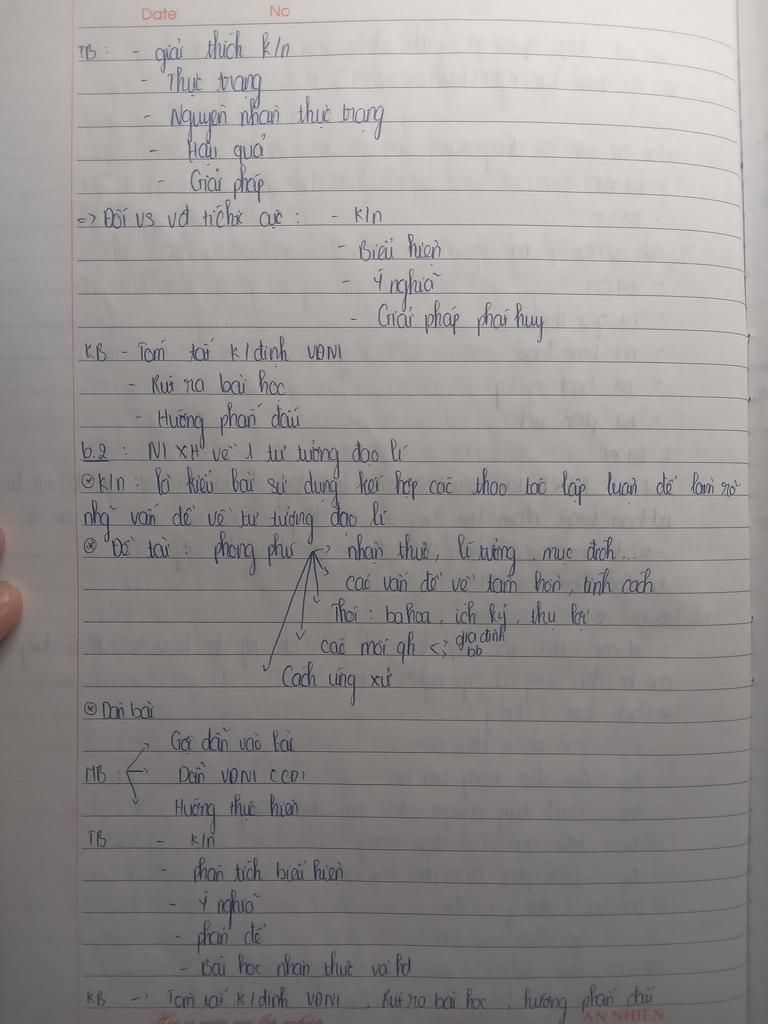 Date No
TB : - giải thích k/n
- Thực trạng
- Nguyên nhân thực trạng
- Hậu quả
- Giải pháp
=> Đối vs vđ tích cực : - k/n
- Biểu hiện
- Ý nghĩa
- Giải pháp phát huy
KB - Tóm tắt k/định VĐNL
- Rút ra bài học
- Hướng phấn đấu
b.2 : NLXH về 1 tư tưởng đạo lí
⊛ k/n : là kiểu bài sử dụng kết hợp các thao tác lập luận để làm rõ
nhg vấn đề về tư tưởng đạo lí
⊛ Đề tài : phong phú -> nhận thức, lí tưởng, mục đích...
các vấn đề về tâm hồn, tính cách
Thói : ba hoa, ích kỷ, thụ lợi
các mối qh < gia đình
bb
Cách ứng xử
⊛ Dàn bài
Gợi dẫn vào bài
MB : Dẫn VĐNL (CĐ)
Hướng thực hiện
TB - k/n
- phân tích biểu hiện
- Ý nghĩa
- phản đề
- Bài học nhận thức và hđ
KB -> Tóm tắt k/định VĐNL, Rút ra bài học, hướng phấn đấu
AN NHIÊN